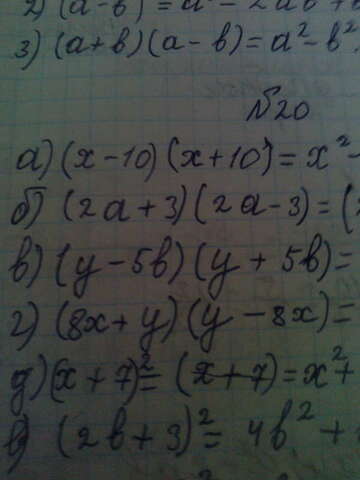 2) (a-в) = a² - 2ав +
3) (a+в)(a-в) = a² - в²
№20
а) (x-10)(x+10) = x² -
б) (2a+3)(2a-3) = (
в) (y-5в)(y+5в) =
г) (8x+y)(y-8x) =
д) (x+7)² = (x+7) = x² +
(2в+3)² = 4в² +